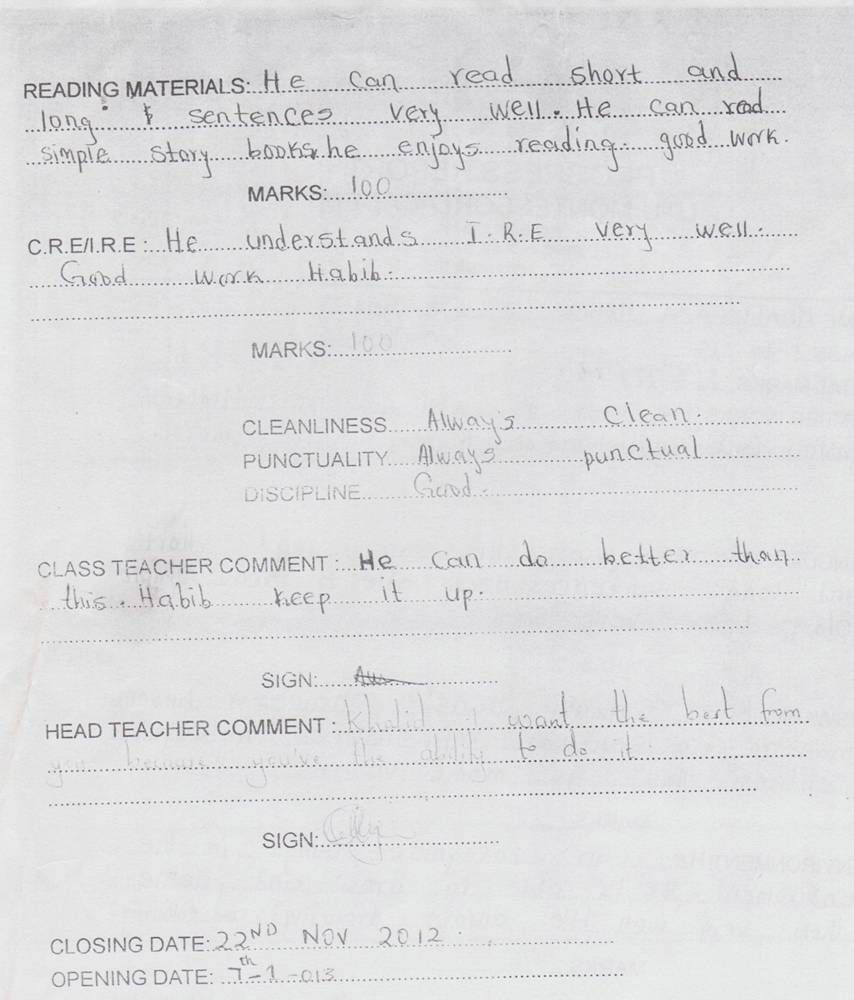 READING MATERIALS: He can read short and
long & sentences very well. He can read
simple story books & he enjoys reading. good work.
MARKS: 100
C.R.E/I.R.E: He understands I.R.E very well.
Good work Habib.
MARKS: 100
CLEANLINESS Always Clean.
PUNCTUALITY Always punctual
DISCIPLINE Good.
CLASS TEACHER COMMENT: He can do better than
this. Habib keep it up.
SIGN:
HEAD TEACHER COMMENT: Khalid I want the best from
you because you've the ability to do it
SIGN:
CLOSING DATE: 22ND NOV 2012
OPENING DATE: 7th-1-013